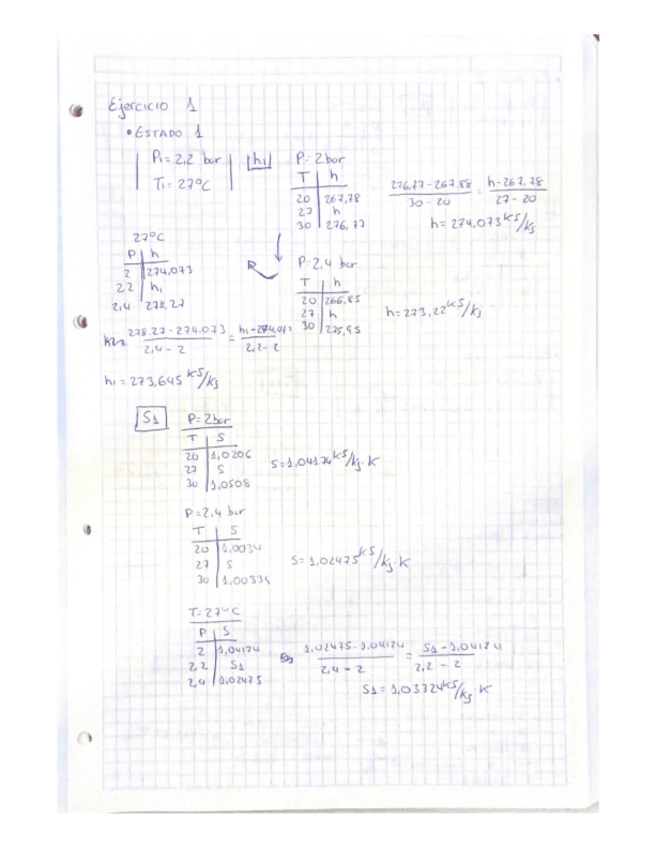 Ejercicio 1
• ESTADO 1
P1 = 2,2 bar
T1 = 27ºC
h1
P = 2 bar
T h
20 267,78
27 h
30 276,77
276,77 - 267,88 / 30 - 20 = h - 267,78 / 27 - 20
h = 274,073 kJ/kg
27ºC
P h
2 274,073
2,2 h1
2,4 278,27
P = 2,4 bar
T h
20 266,85
27 h
30 275,95
h = 273,22 kJ/kg
278,27 - 274,073 / 2,4 - 2 = h1 - 274,073 / 2,2 - 2
h1 = 273,645 kJ/kg
S1
P = 2 bar
T S
20 1,0206
27 S
30 1,0508
S = 1,04174 kJ/kg·K
P = 2,4 bar
T S
20 1,0034
27 S
30 1,00339
S = 1,02475 kJ/kg·K
T = 27ºC
P S
2 1,04174
2,2 S1
2,4 1,02475
1,02475 - 1,04174 / 2,4 - 2 = S1 - 1,04174 / 2,2 - 2
S1 = 1,03324 kJ/kg·K